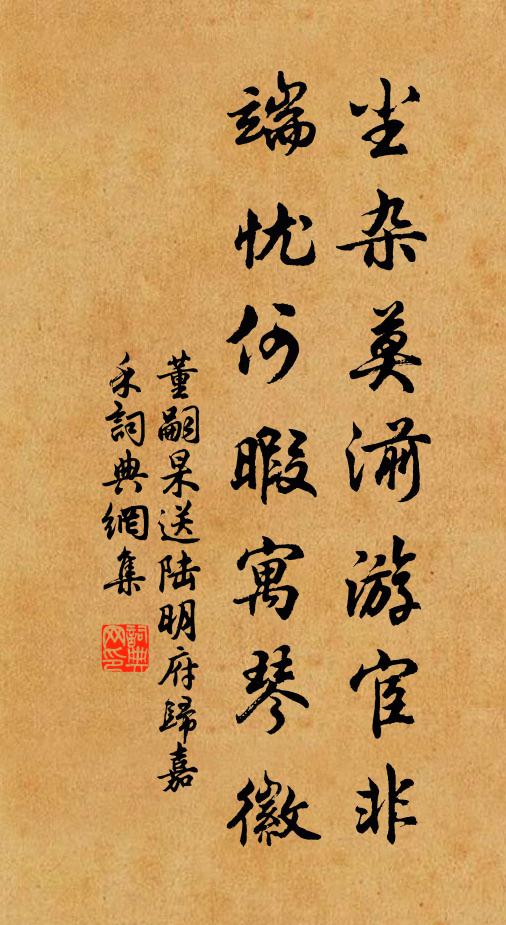 尘杂莫湔游宦非
端忧何暇寓琴徽
董嗣杲送陆明府歸嘉
禾詞典網集
詞典网印